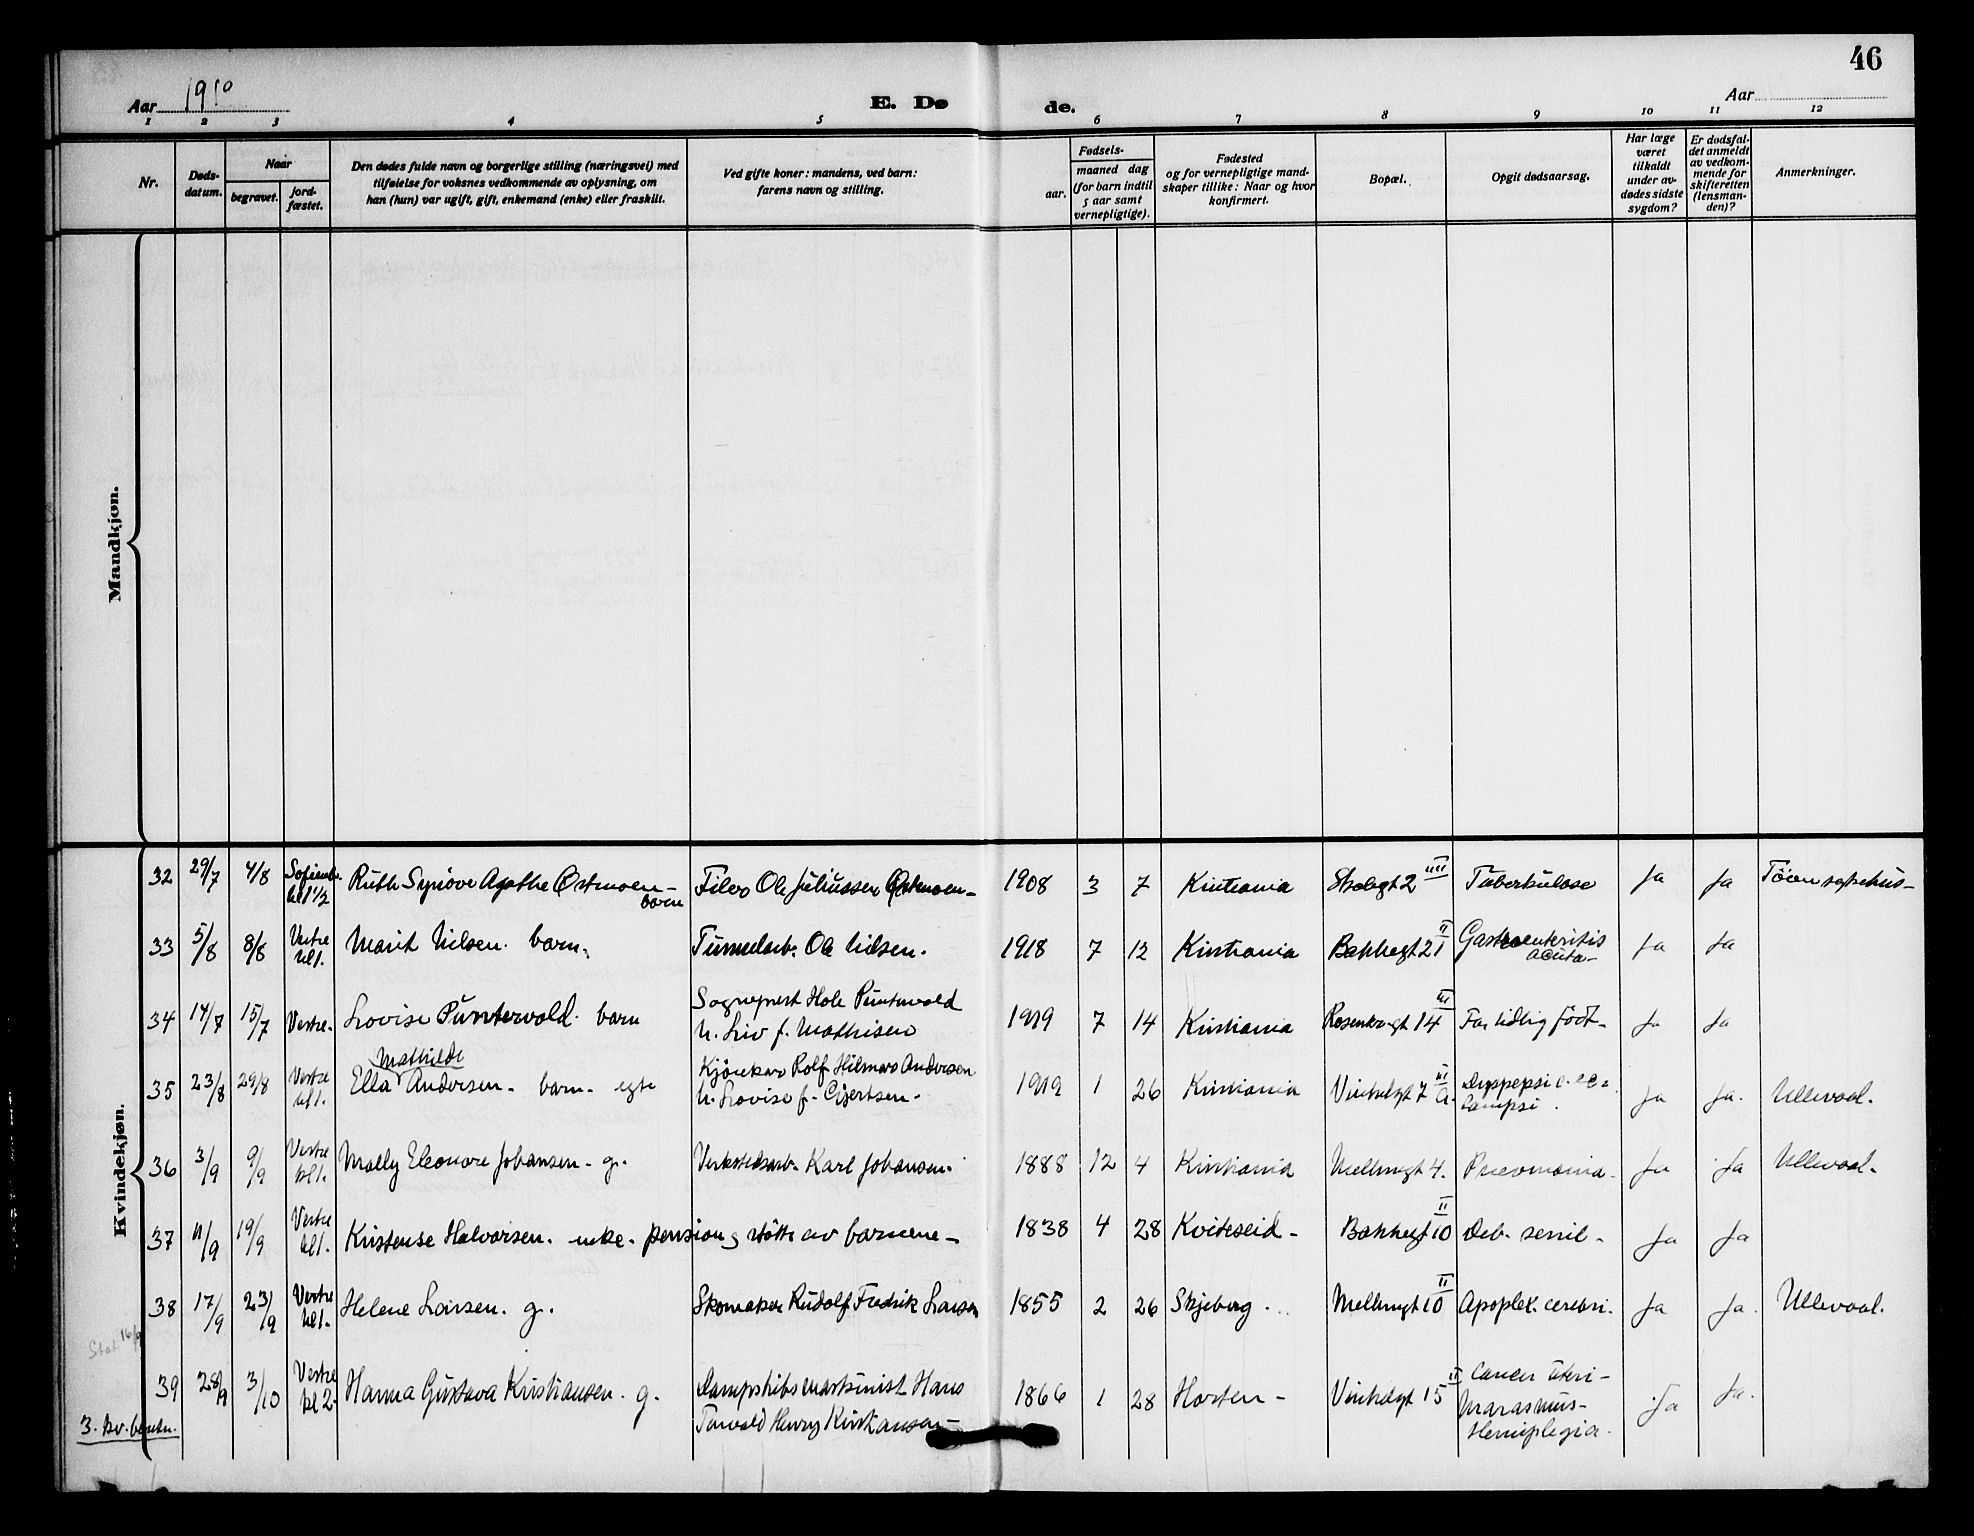 46
Aar 19 E. Døde. Aar
1 2 3 4 5 6 7 8 9 10 11 12
Nr.
Døds-
datum.
Naar
begravet.
jord-
fæstet.
Den dødes fulde navn og borgerlige stilling (næringsvei) med
tilføielse for voksnes vedkommende av oplysning, om
han (hun) var ugift, gift, enkemand (enke) eller fraskilt.
Ved gifte koner: mandens, ved barn:
farens navn og stilling.
Fødsels-
aar.
maaned dag
(for barn indtil
5 aar samt
vernepligtige).
Fødested
og for vernepligtige mand-
skaper tillike: Naar og hvor
konfirmert.
Bopæl.
Opgit dødsaarsag.
Har læge
været
tilkaldt
under av-
dødes sidste
sygdom?
Er dødsfal-
det anmeldt
av vedkom-
mende for
skifteretten
(lensman-
den)?
Anmerkninger.
Mandkjøn.
Kvindekjøn.
32 29/7 4/8 Sofienb. kl 1½ Ruth Synöve Agathe Østmoen - barn Filer Ole Juliussen Østmoen - 1908 3 7 Kristiania 2 IIII Tuberkulose Ja Ja Töien sykehus -
33 5/8 8/8 Vestre kl 1. Marit Nilsen. barn. Tunnelarb. Ole Nilsen. 1918 7 12 Kristiania Bakkegt 21 II Gastroenteritis acuta - Ja Ja
34 14/7 15/7 Vestre. Lovise Puntervold. barn Sogneprest Hole Puntervold
u. Liv f. Mathisen 1919 7 14 Kristiania Rosenkrgt 14 III For tidlig född - Ja Ja
35 23/8 29/8 Vestre kl 1. Ella Mathilde Andersen - barn - egte Kjörekar Rolf Hilmar Andersen
u. Lovise f. Gjertsen - 1919 1 26 Kristiania Vinkelgt 7 a. III Dyspepsi e. ec=
lampsi. Ja Ja. Ullevaal.
36 3/9 9/9 Vestre kl 1. Molly Eleonore Johansen - g. Verkstedsarb. Karl Johansen. 1888 12 4 Kristiania Mellemgt 4. Pneumonia. Ja Ja Ullevaal.
37 11/9 19/9 Vestre kl 1. Kristense Halvorsen. enke. pension og stötte av barnene - 1838 4 28 Kviteseid - Bakkegt 10 II Deb. senil - Ja Ja
38 17/9 23/9 Vestre kl 1. Helene Larsen. g. Skomaker Rudolf Fredrik Larsen 1855 2 26 Skjeberg. Mellemgt 10 II Apoplex. cerebri. Ja Ja. Ullevaal.
16/9
39 28/9 3/10 Vestre kl 2. Hanna Gustava Kristiansen. g. Dampskibsmaskinist Hans
Torvald Henry Kristiansen - 1866 1 28 Horten - Vinkelgt 15 II Cancer uteri -
Marasmus -
Hemiplegia. Ja Ja.
3. kv.